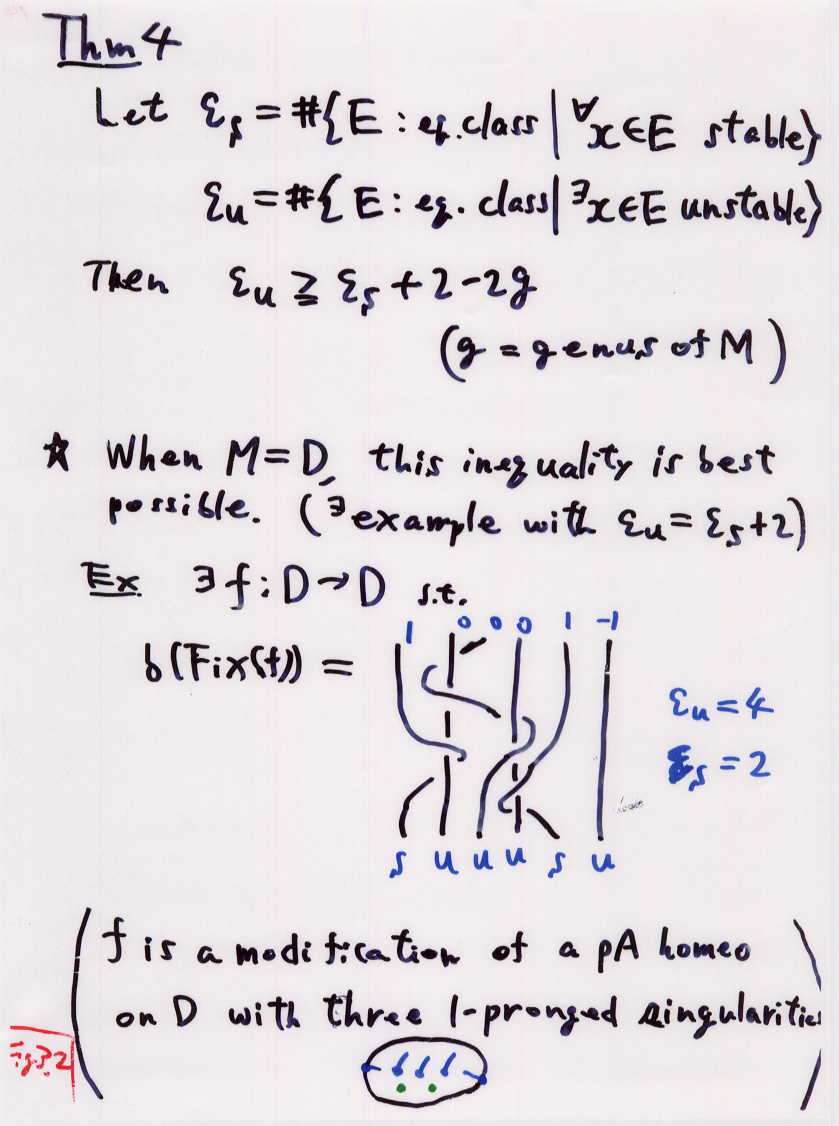 Thm 4
Let ε_s = #{E : eq. class | ∀x∈E stable}
ε_u = #{E : eq. class | ∃x∈E unstable}
Then ε_u ≧ ε_s + 2 - 2g
(g = genus of M)
☆ When M = D, this inequality is best
possible. (∃example with ε_u = ε_s + 2)
Ex ∃f : D → D s.t.
1 0 0 0 1 -1
b(Fix(f)) =
ε_u = 4
ε_s = 2
s u u u s u
(f is a modification of a pA homeo
on D with three 1-pronged singularities)
Fig 3.2